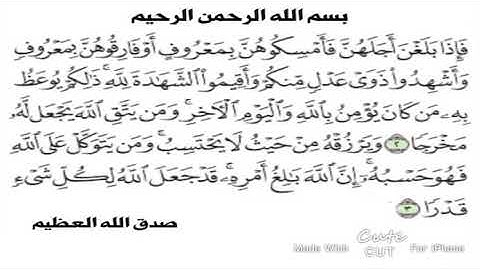 بسم الله الرحمن الرحيم
فَإِذَا بَلَغْنَ أَجَلَهُنَّ فَأَمْسِكُوهُنَّ بِمَعْرُوفٍ أَوْ فَارِقُوهُنَّ بِمَعْرُوفٍ
وَأَشْهِدُوا۟ ذَوَىْ عَدْلٍ مِّنكُمْ وَأَقِيمُوا۟ ٱلشَّهَـٰدَةَ لِلَّهِ ۚ ذَٰلِكُمْ يُوعَظُ
بِهِۦ مَن كَانَ يُؤْمِنُ بِٱللَّهِ وَٱلْيَوْمِ ٱلْـَٔاخِرِ ۚ وَمَن يَتَّقِ ٱللَّهَ يَجْعَل لَّهُۥ
مَخْرَجًا ٢ وَيَرْزُقْهُ مِنْ حَيْثُ لَا يَحْتَسِبُ ۚ وَمَن يَتَوَكَّلْ عَلَى ٱللَّهِ
فَهُوَ حَسْبُهُۥٓ ۚ إِنَّ ٱللَّهَ بَـٰلِغُ أَمْرِهِۦ ۚ قَدْ جَعَلَ ٱللَّهُ لِكُلِّ شَىْءٍ
قَدْرًا ٣
صدق الله العظيم
Made With Cute CUT For iPhone